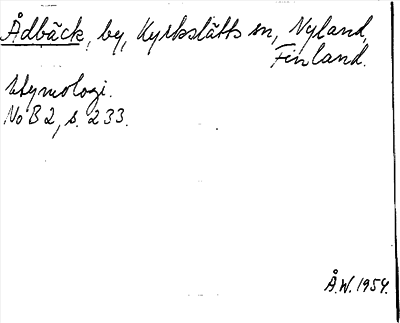 Ådbäck, by, Kyrkslätts sn, Nyland,
Finland.
Etymologi.
NoB 2, s. 233.
Å.W. 1954.